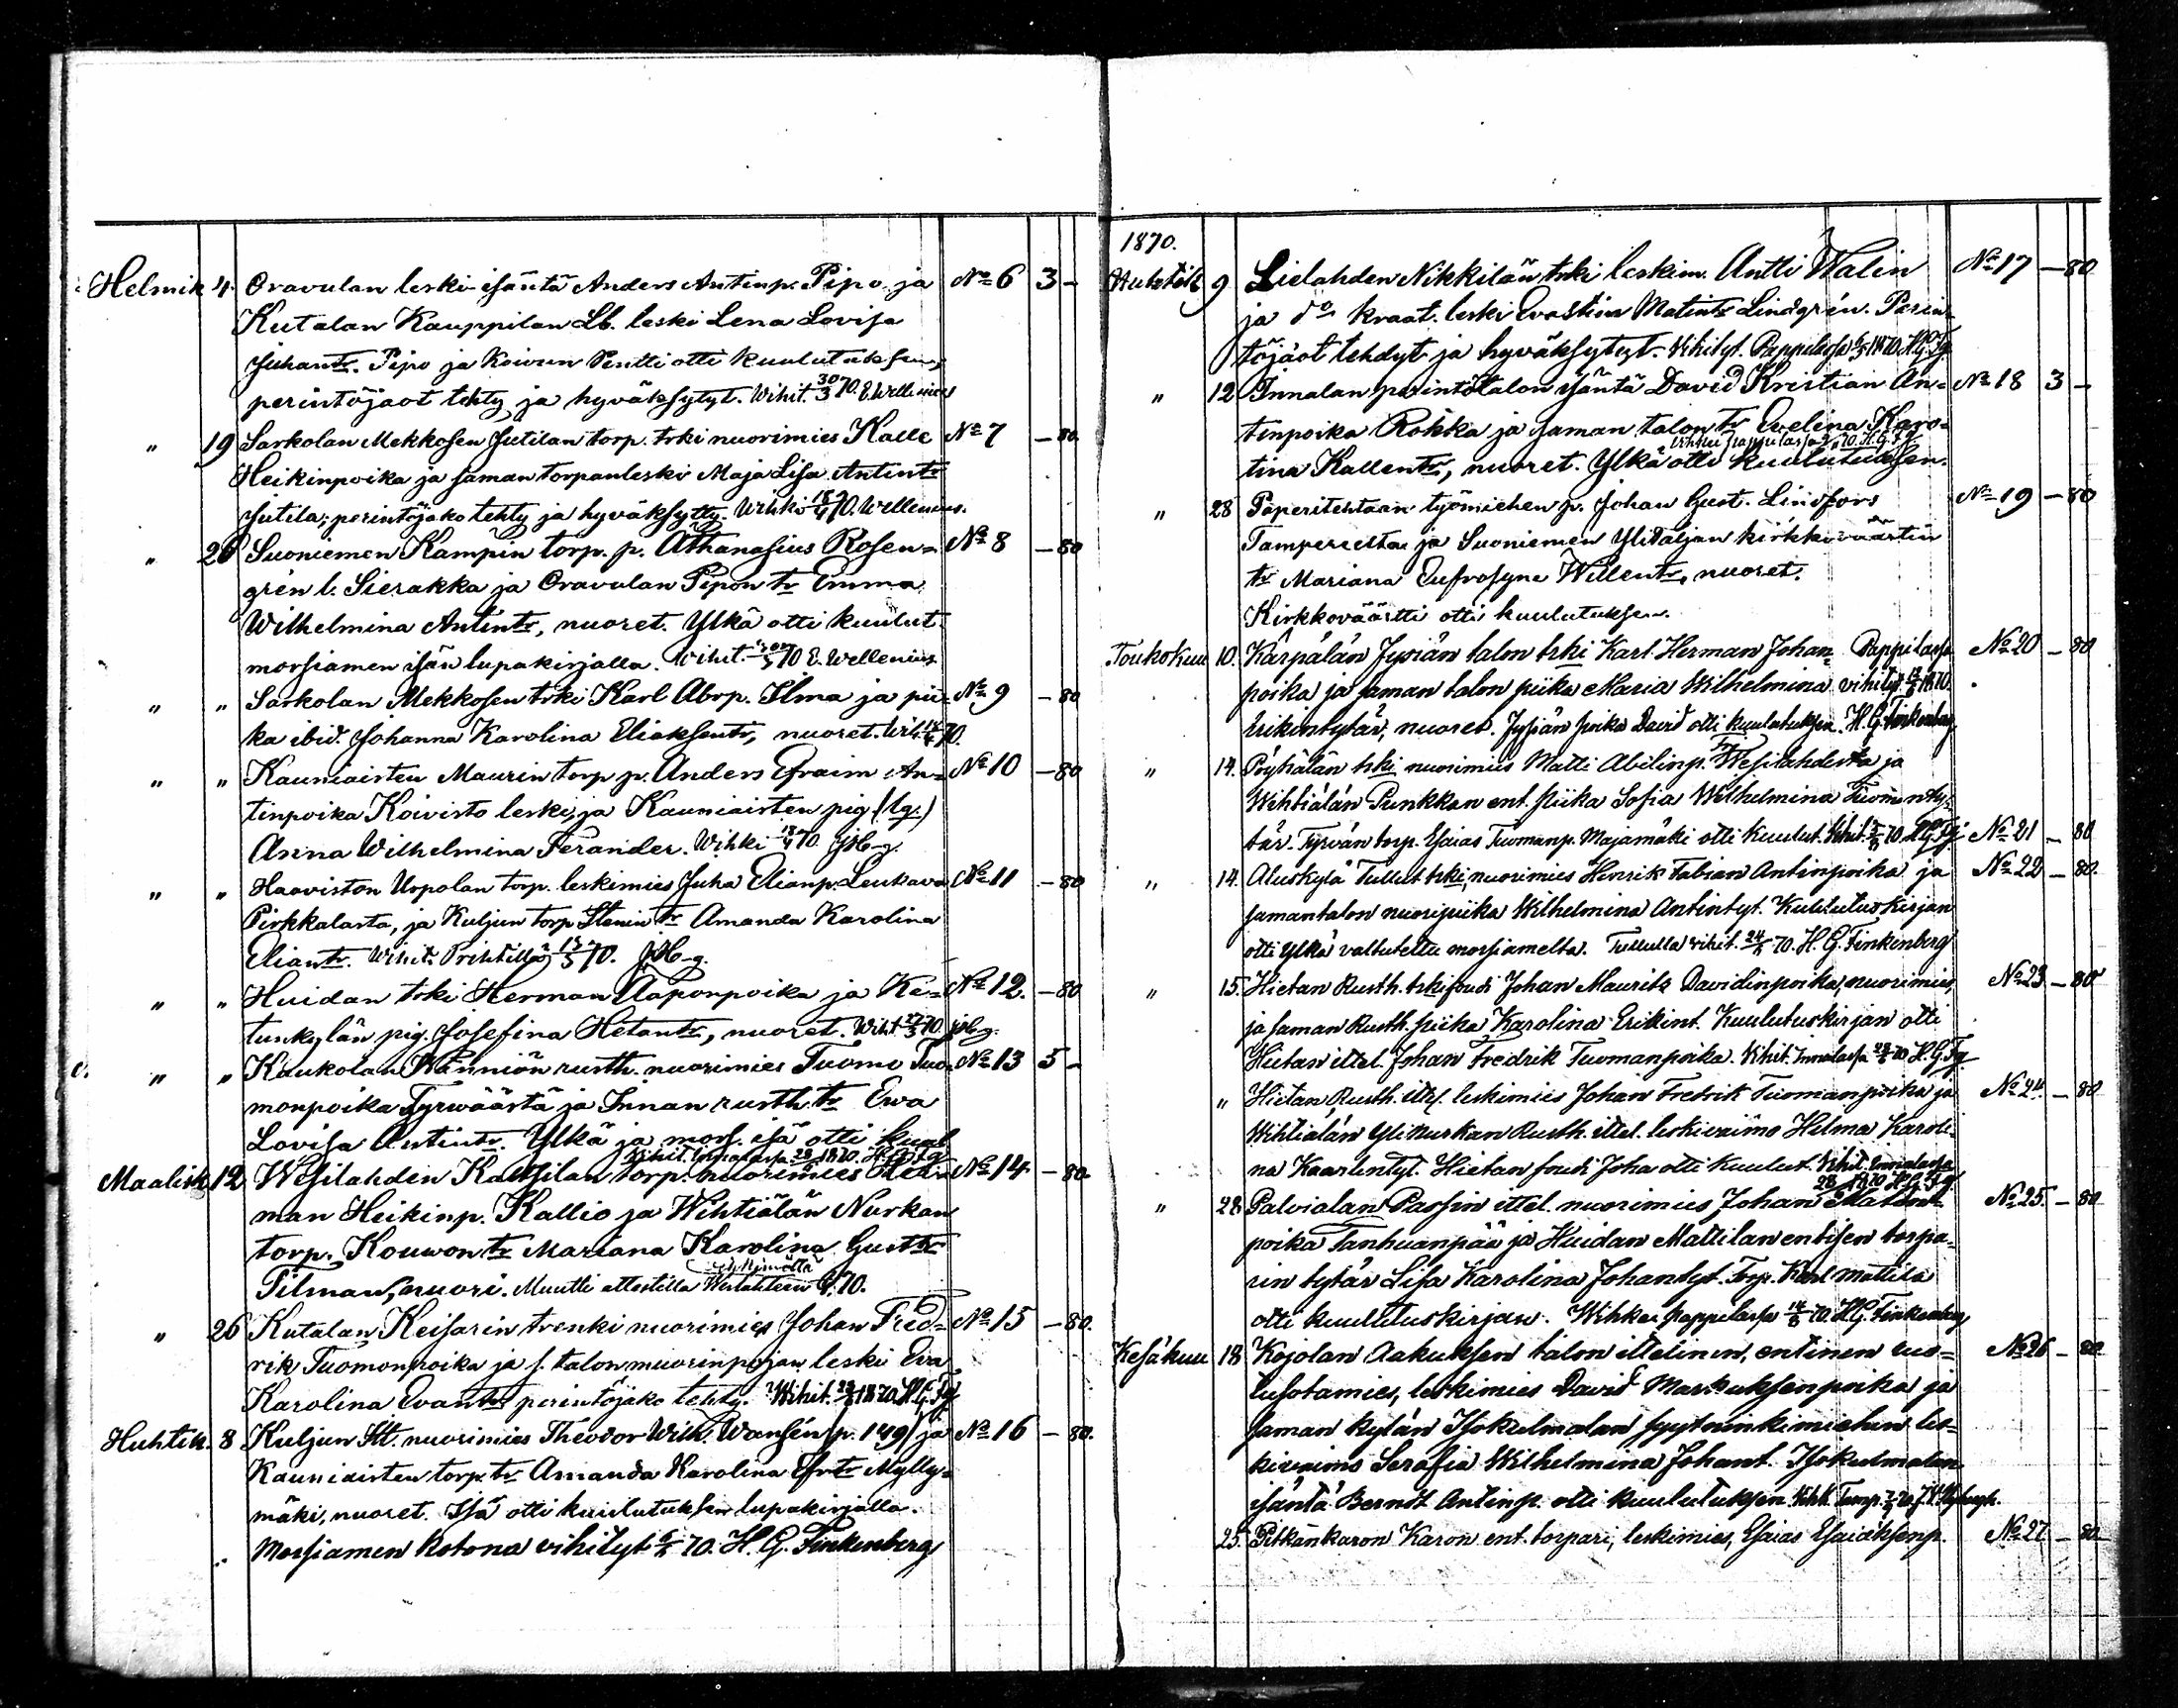 Helmik 4. Oravulan leski-isäntä Anders Antinp. Pipo ja No 6 3 -
Kutalan Kauppilan Lb. leski Lena Lovisa
Juhantr. Pipo ja Koivun Pentti otti kuulutuksen,
perintöjaot tehty ja hyväksytyt. Wihit. 30/3 70. E. Wellenius
" 19 Sarkolan Mekkosen Jutilan torp. trki nuorimies Kalle No 7 - 80.
Heikinpoika ja saman torpan leski Maja Lisa Antintr
Jutila; perintöjako tehty ja hyväksytty. Wihki 18/4 70. Wellenius.
" 26 Suoniemen Kämpin torp. p. Athanasius Rosen- No 8 - 80
grén l. Sierakka ja Oravulan Pipon tr Emma
Wilhelmina Antintr, nuoret. Ylkä otti kuulut.
morsiamen isän lupakirjalla. Wihit. 70 E. Wellenius
" " Sarkolan Mekkosen trki Karl Abrp. Ilma ja pii- No 9 - 80
ka ibid. Johanna Karolina Eliaksentr, nuoret. Wih. 70.
" " Kauniaisten Maurin torp. p. Anders Efraim An- No 10 - 80
tinpoika Koivisto leski, ja Kauniaisten pig (lg.)
Anna Wilhelmina Ferander. Wihki 18/4 70.
" " Haaviston Uopolan torp. leskimies Juha Elianp. Leukava No 11 - 80
Pirkkalasta, ja Kuljun torp. Stenin tr Amanda Karolina
Eliantr. Wihit. 13/3 70.
" " Huidan trki Herman Aaponpoika ja Ke- No 12. - 80
tunkylän pig. Josefina Hetantr, nuoret. Wihit 27/3 70.
" " Kaukolan Wänniön rusth. nuorimies Tuomo Tuo- No 13 5 -
monpoika Tyrwäästä ja Innan rusth. tr Ewa
Lovisa Antintr. Ylkä ja mors. isä otti kuul
Wihit. 1870. H. G. Fg
Maalisk 12 Wesilahden Kattilan torp. nuorimies Her- No 14 - 80.
man Heikinp. Kallio ja Wihtiälän Nurkan
torp. Kouwon tr Mariana Karolina Gusttr
Tilman, nuori. Muutti attestilla 70.
" 26 Kutalan Keisarin trenki nuorimies Johan Fred- No 15 - 80.
rik Tuomonpoika ja s. talon nuorinpojan leski Eva
Karolina Evantr perintöjako tehty. Wihit. 1870 H. G. Fg
Huhtik. 8 Kuljun Stt. nuorimies Theodor Wilh. Wansén (p. 149) ja No 16 - 80.
Kauniaisten torp. tr Amanda Karolina Efrtr Mylly-
mäki, nuoret. Isä otti kuulutuksen lupakirjalla.
Morsiamen kotona vihityt 70. H. G. Finkenberg
1870.
Huhtik 9 Lielahden Nikkilän trki leskim. Antti Walin No 17 - 80
ja do kraat. leski Evastiina Matintr Lindgrén. Perin-
töjäot tehdyt ja hyväksytyt. Vihityt. Pappilassa 1870. H. G. Fg.
" 12 Innalan perintötalon isäntä David Kristian An- No 18 3 -
tinpoika Rökka ja saman talon tr Evelina Karo-
Vihkii pappilassa 70. H. G. Fg
tina Kallentr, nuoret. Ylkä otti kuulutuksen.
" 28 Paperitehtaan työmiehen p. Johan Gust. Lindfors No 19 - 80
Tampereelta ja Suoniemen Ylitaljan kirkkoväärtin
tr Mariana Eufrosyne Willentr, nuoret.
Kirkkoväärtti otti kuulutuksen.
Toukokuu 10. Kärpälän Jysiän talon trki Karl Herman Johan- Pappilassa No 20 - 80
poika ja saman talon piika Maria Wilhelmina vihityt 1870.
Erikintytär, nuoret. Jysiän poika David otti kuulutuksen. H. G. Finkenberg
" 14. Pöyhälän trki nuorimies Matti Abelinp. Wesilahdesta ja
Wihtiälän Punkkan ent. piika Sofia Wilhelmina Tuomonty-
tär. Tyrvän torp. Esaias Tuomanp. Majamäki otti kuulut. Vihit. 70 H. G. Fg No 21 - 80
" 14. Aluskylä Tullut trki, nuorimies Henrik Fabian Antinpoika ja No 22 - 80.
samantalon nuoripiika Wilhelmina Antintyt. Kuulutuskirjan
otti Ylkä valtutettu morsiamelta. Tullulla vihit. 70. H. G. Finkenberg
" 15. Hietan Rusth. trki Johan Maurits Davidinpoika, nuorimies, No 23 - 80
ja saman Rusth. piika Karolina Erikint. Kuulutuskirjan otti
Hietan ittel. Johan Fredrik Tuomanpoika. Vihit. Innalassa 70 H. G. Fg.
" Hietan Rusth. ittel. leskimies Johan Fredrik Tuomanpoika ja No 24 - 80
Wihtiälän Ylinurkan Rusth. ittel. leskivaimo Helma Karoli-
na Kaarlentyt. Hietan Joha otti kuulut. Vihit. Innalassa
1870 H. G. Fg.
" 28 Palvialan Passin ittel. nuorimies Johan Matin- No 25. - 80
poika Tanhuanpää ja Huidan Mattilan entisen torpa-
rin tytär Lisa Karolina Johantyt. Torp. Karl Mattila
otti kuulutuskirjan. Wihkei pappilassa 70. H. G. Finkenberg
Kesäkuu 18 Kojolan Aakuksen talon ittelinen, entinen ruo- No 26 - 80
tusotamies, leskimies David Markuksenpoika ja
saman kylän Isokulmalan syytinkimiehen les-
kivaimo Serafia Wilhelmina Johant. Isokulmalan
isäntä Berndt Antinp. otti kuulutuksen.
25. Pitkänkaron Karon ent. torpari, leskimies, Esaias Esaiaksenp. No 27 - 80